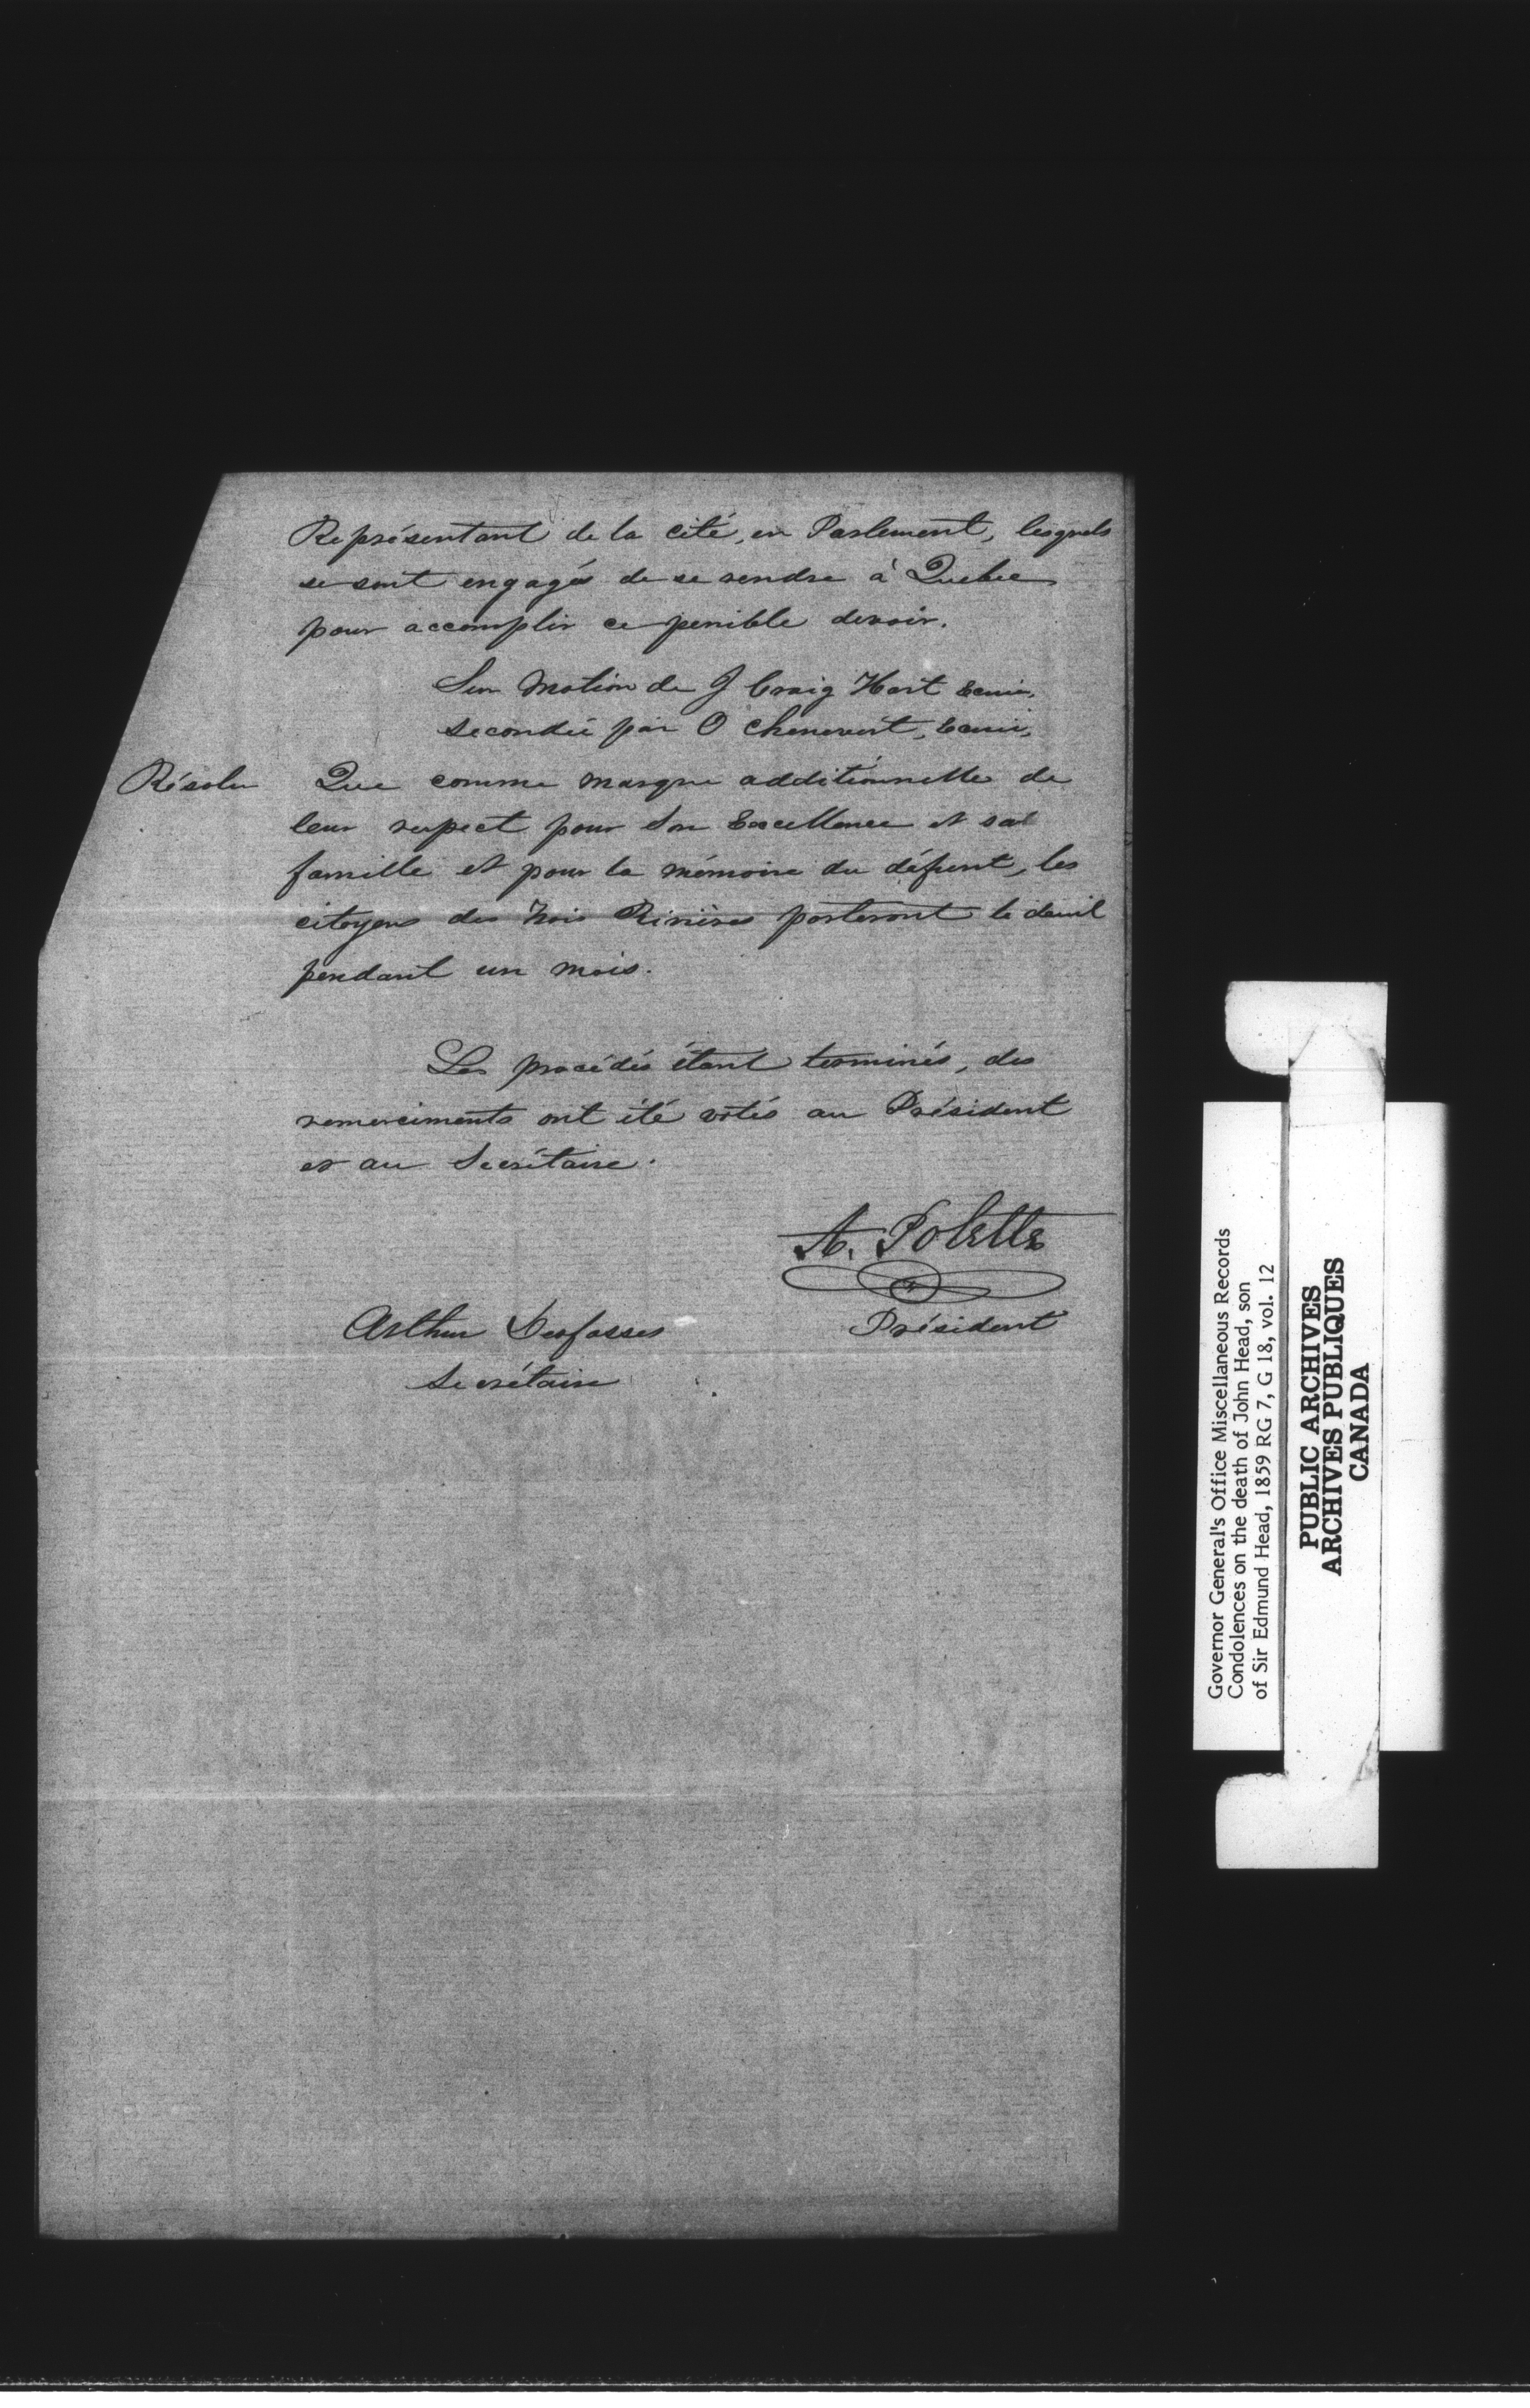 Représentant de la cité, en Parlement, lesquels
se sont engagés de se rendre à Quebec
pour accomplir ce penible devoir.
Sur Motion de J Craig Hart Ecuier,
secondée par O Chenevert, Ecuier,
Résolu Que comme marque additionnelle de
leur respect pour Son Excellence et sa
famille et pour la mémoire du défunt, les
citoyens des Trois Rivières porteront le deuil
pendant un mois.
Les procédés étant terminés, des
remerciments ont été votés au Président
et au Secrétaire.
A. Polette
Président
Arthur Desfosses
Secrétaire
Governor General's Office Miscellaneous Records
Condolences on the death of John Head, son
of Sir Edmund Head, 1859 RG 7, G 18, vol. 12
PUBLIC ARCHIVES
ARCHIVES PUBLIQUES
CANADA